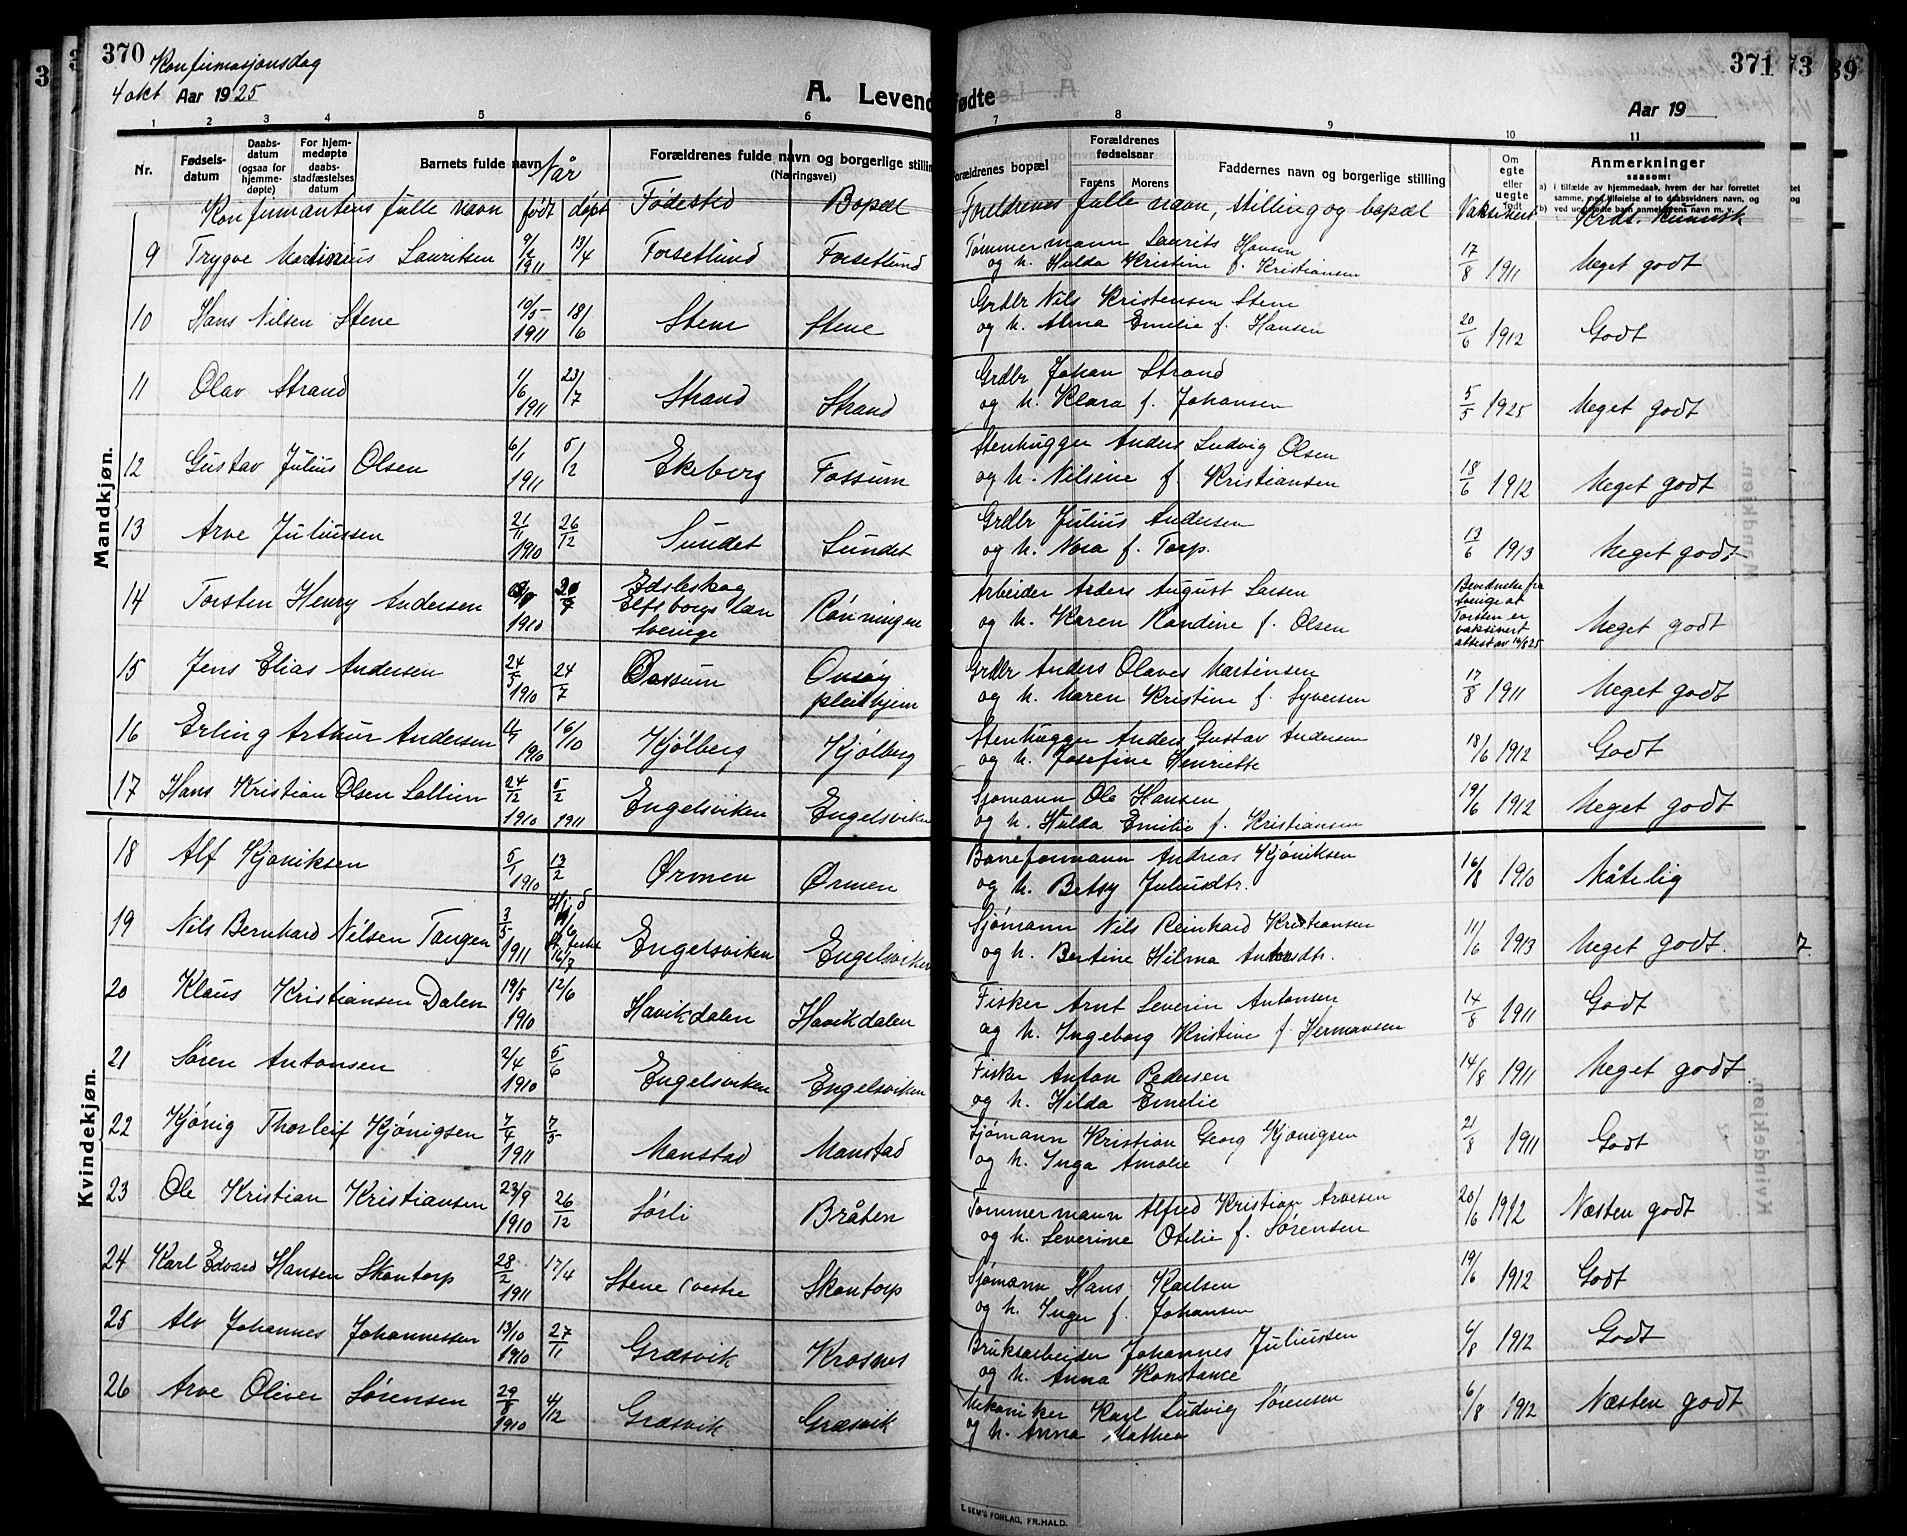 370
Konfirmasjonsdag
4 okt Aar 1925
A. Levendefødte
371
Aar 19
1 2 3 4 5 6 7 8 9 10 11
Nr. Fødsels-datum Daabs-datum (ogsaa for hjemme-døpte) For hjem-medøpte daabs-stadfæstelses datum Barnets fulde navn Når Forældrenes fulde navn og borgerlige stilling (Næringsvei) Forældrenes bopæl Forældrenes fødselsaar Farens Morens Faddernes navn og borgerlige stilling Om egte eller uegte født Anmerkninger saasom:
a) i tilfælde av hjemmedaab, hvem der har forrettet samme, med tilføielse af to daabsvidners navn, og
b) ved uegtefødte barn anmelderens navn m. v.
Konfirmantens fulle navn født døpt Fødested Bopæl Foreldrenes fulle navn, stilling og bopæl Vaksinert Krdt. kunnsk
Mandkjøn.
9 Trygve Martinius Lauritsen 9/2 1911 13/4 Forsetlund Forsetlund Tømmermann Laurits Hansen
og h. Hulda Kristine f. Kristiansen 17/8 1911 Meget godt
10 Hans Nilsen Stene 19/5 1911 18/6 Stene Stene Grdbr Nils Kristensen Stene
og h. Alma Emilie f. Hansen 20/6 1912 Godt
11 Olav Strand 1/6 1911 23/7 Strand Strand Grdbr Johan Strand
og h. Klara f. Johansen 5/5 1925 Meget godt
12 Gustav Julius Olsen 6/1 1911 5/2 Ekeberg Fossum Stenhugger Anders Ludvig Olsen
og h. Nilsine f. Kristiansen 18/6 1912 Meget godt
13 Arve Juliussen 21/11 1910 26/12 Sundet Sundet Grdbr Julius Andersen
og h. Nora f. Torp. 13/6 1913 Meget godt
14 Torsten Henry Andersen 1910 Edsleskog Elfsborgs län Sverige Rönningen Arbeider Anders August Larsen
og h. Karen Randine f. Olsen Bevidnelse fra Sverige at Torsten er vaksinert attest av 14/8 25 Meget godt
15 Jens Elias Andersen 24/5 1910 24/7 Ossum Onsøy pleiehjem Grdbr Anders Olaves Martinsen
og h. Maren Kristine f. Syversen 17/8 1911 Meget godt
16 Erling Arthur Andersen 1910 16/10 Kjølberg Kjølberg Stenhugger Anders Gustav Andersen
og h. Josefine Henriette 18/6 1912 Godt
17 Hans Kristian Olsen Lallim 24/12 1910 5/2 1911 Engelsviken Engelsviken Sjømann Ole Hansen
og h. Hulda Emilie f. Kristiansen 19/6 1912 Meget godt
Kvindekjøn.
18 Alf Kjøniksen 5/1 1910 13/2 Ørmen Ørmen Baneformann Andreas Kjøniksen
og h. Betsy Juliusdtr. 16/8 1910 Måtelig
19 Nils Bernhard Nilsen Tangen 3/5 1911 Hjd 16/7 Engelsviken Engelsviken Sjømann Nils Reinhard Kristiansen
og h. Bertine Hilma 11/6 1913 Meget godt. 7.
20 Klaus Kristiansen Dalen 19/5 1910 12/6 Havikdalen Havikdalen Fisker Arnt Severin Antonsen
og h. Ingeborg Kristine f. Hermansen 14/8 1911 Godt
21 Søren Antonsen 2/4 1910 5/6 Engelsviken Engelsviken Fisker Anton Pedersen
og h. Hilda Emelie 14/8 1911 Meget godt
22 Kjønig Thorleif Kjønigsen 7/4 1911 7/5 Manstad Manstad Sjømann Kristian Georg Kjønigsen
og h. Inga Amalie 21/8 1911 Godt
23 Ole Kristian Kristiansen 23/9 1910 26/12 Sørli Bråten Tømmermann Alfred Kristian Arvesen
og h. Severine Otilie f. Sørensen 20/6 1912 Næsten godt
24 Karl Edvard Hansen Skantorp 28/2 1911 17/4 Stene (vestre Skantorp Sjømann Hans Karlsen
og h. Inger f. Johansen 19/6 1912 Godt
25 Alv Johannes Johannessen 13/10 1910 27/11 Græsvik Krosnes Bruksarbeider Johannes Juliussen
og h. Anna Konstance 6/8 1912 Godt
26 Arve Oliver Sørensen 29/8 1910 4/12 Græsvik Græsvik Mekaniker Karl Ludvig Sørensen
og h. Anna Mathea 6/8 1912 Næsten godt
E. SEM'S FORLAG, FR.HALD.